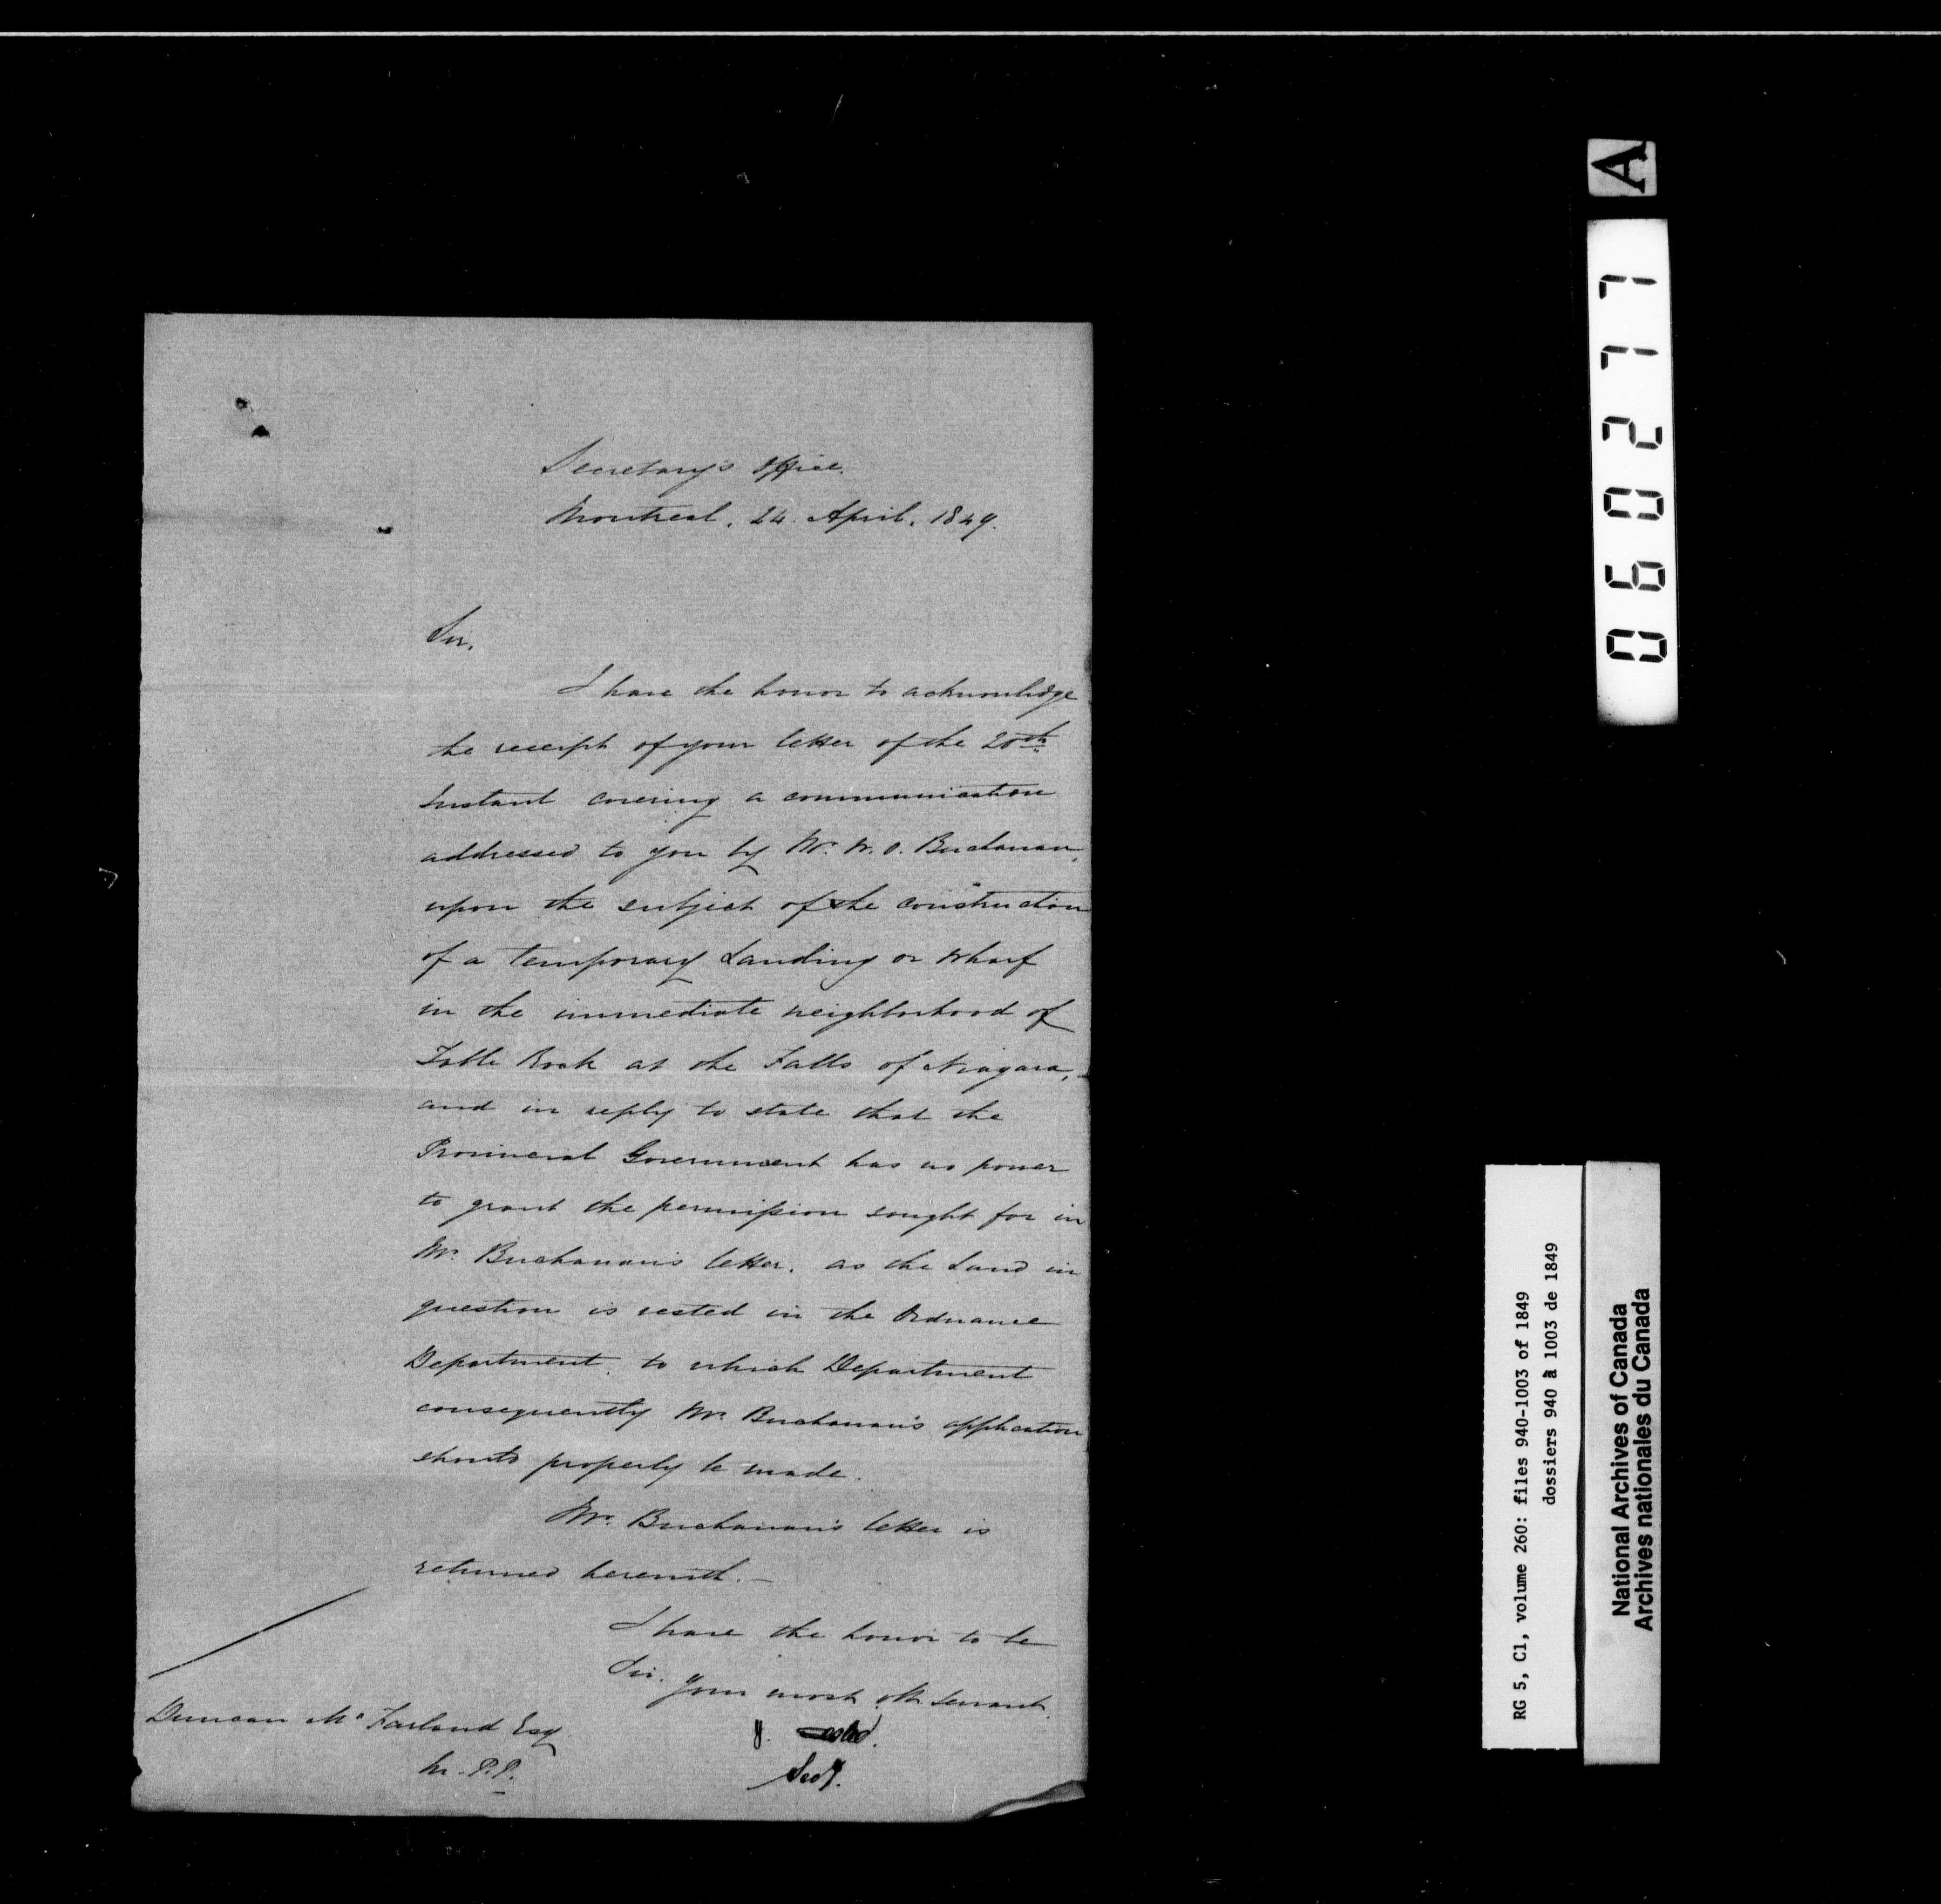 Secretary's Office.
Montreal, 24. April, 1849.
Sir,
I have the honor to acknowledge
the receipt of your letter of the 20th
Instant covering a communication
addressed to you by Mr. W. O. Buchanan,
upon the subject of the construction
of a temporary Landing or wharf
in the immediate neighborhood of
Table Rock at the Falls of Niagara,
and in reply to state that the
Provincial Government has no power
to grant the permission sought for in
Mr. Buchanan's letter, as the Land in
question is vested in the Ordnance
Department, to which Department
consequently Mr. Buchanan's application
should properly be made.
Mr. Buchanan's letter is
returned herewith. —
I have the honor to be
Sir.
Your most obt servant.
Secy.
Duncan McFarland Esq
M.P.P.
A
060277
RG 5, C1, volume 260: files 940-1003 of 1849
dossiers 940 à 1003 de 1849
National Archives of Canada
Archives nationales du Canada